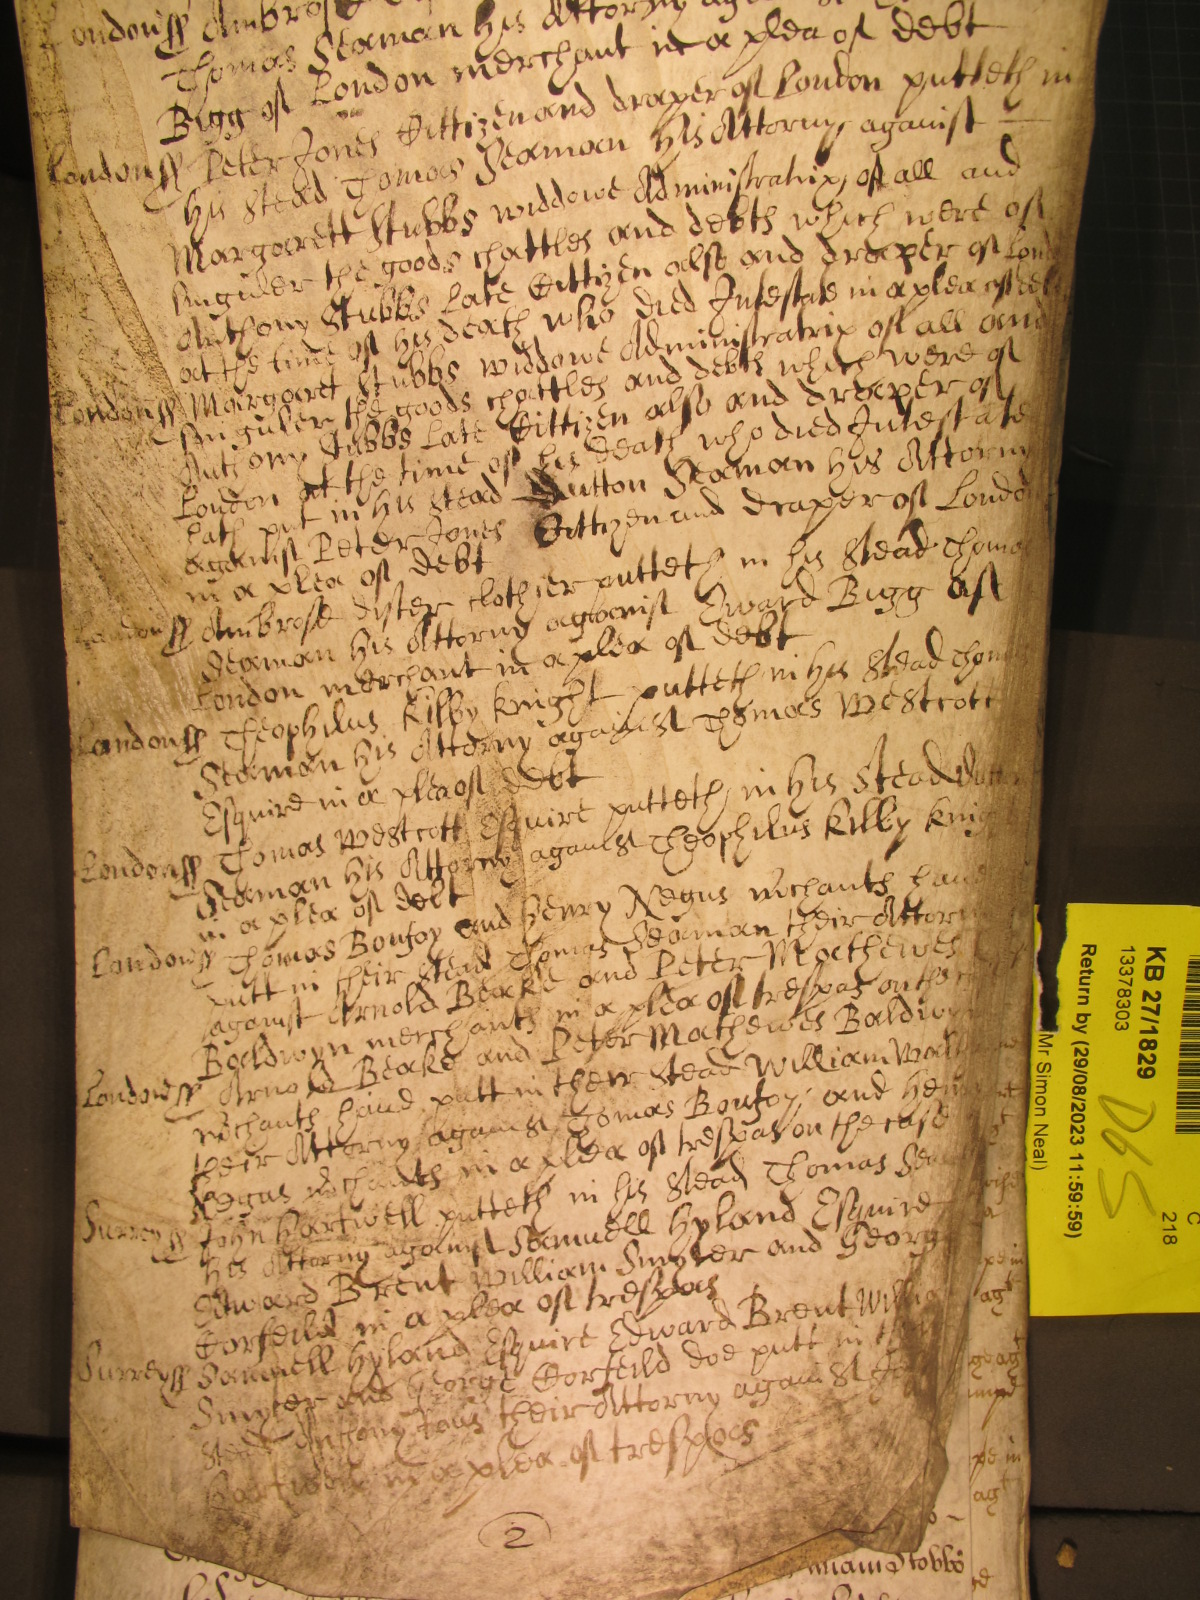 Londonss Ambrose
Thomas Seaman his Attorny
Bigg of London merchant in a plea of debt
Londonss Peter Jones Cittizen and draper of London putteth in
his stead Thomas Seaman his Attorny against
Margarett Stubbs widdowe Administratrix of all and
singuler the goods chattles and debts which were of
Anthony Stubbs late Cittizen also and draper of London
at the time of his death who died Intestate in a plea of debt
Londonss Margaret Stubbs widdowe Administratrix of all and
singuler the goods chattles and debts which were of
Anthony Stubbs late Cittizen also and draper of
London at the time of his death who died Intestate
hath put in his stead Dutton Seaman his Attorny
against Peter Jones Cittizen and draper of London
in a plea of debt
Londonss Ambrose Dyster clothier putteth in his stead Thomas
Seaman his Attorny against Edward Bugg of
London merchant in a plea of debt
Londonss Theophilus Kilby knight putteth in his stead Thom
Seaman his Attorny against Thomas Westcott
Esquire in a plea of debt
Londonss Thomas Westcott Esquire putteth in his stead Dutton
Seaman his Attorny against Theophilus Kilby knig
in a plea of debt
Londonss Thomas Boufoy and Henry Negus mchants haue
putt in their stead Thomas Seaman their Attorn
against Arnold Beake and Peter Mathewes
Baldwyn merchants in a plea of trespas on the
Londonss Arnold Beake and Peter Mathewes Baldwyn
mchants haue putt in their stead William Walt
their Attorny against Thomas Boufoy and Hen
Negus mchants in a plea of trespas on the case
Surreyss John Hartwell putteth in his stead Thomas Sea
his Attorny against Samuell Hyland Esquire
Edward Brent William Smyter and George
Corfeild in a plea of trespas
Surreyss Samuell Hyland Esquire Edward Brent Willia
Smyter and George Corfeild doe putt in th
stead Anthony their Attorny against Jo
Hartwell in a plea of trespas
2
KB 27/1829
13378303
Return by (29/08/2023 11:59:59)
Mr Simon Neal)
D65
C
218